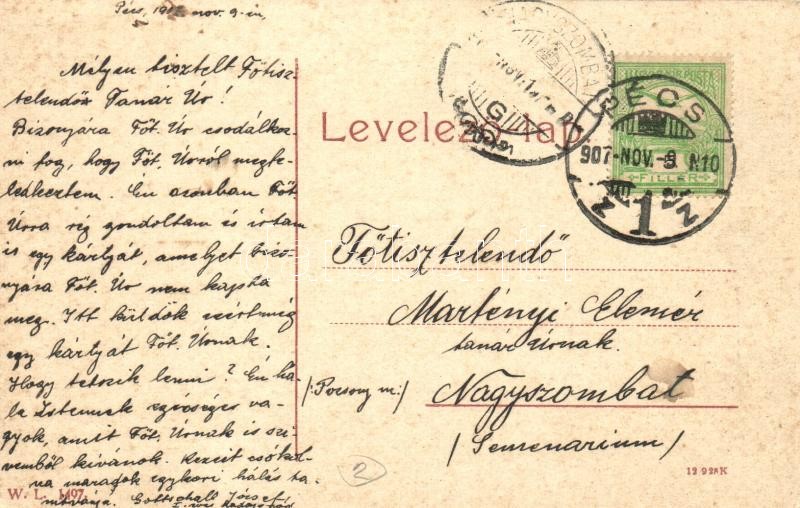 Pécs, 1907. nov. 9-én,
Mélyen tisztelt Főtisz-
telendő Tanár Úr!
Bizonyára Főt. Úr csodálkoz-
ni fog, hogy Főt. Úrról megfe-
ledkeztem. Én azonban Főt.
Úrra rég gondoltam és írtam
is egy kártyát, amelyet bizo-
nyára Főt. Úr nem kapta
meg. Itt küldök ezért még
egy kártyát Főt. Úrnak.
Hogy tetszik lenni? Én há-
la Istennek egészséges va-
gyok, amit Főt. Úrnak is szi-
vemből kívánok. Kezeit csókol-
va maradok egykori hálás ta-
nítványa. Gottschall József
Levelező-lap
PÉCS
907-NOV.-9 N10
1
FILLÉR
G
Főtisztelendő
Martényi Elemér
tanár Úrnak.
/Pozsony m:/ Nagyszombat
/Semenarium/
2
W. L. 1497.
12 928K